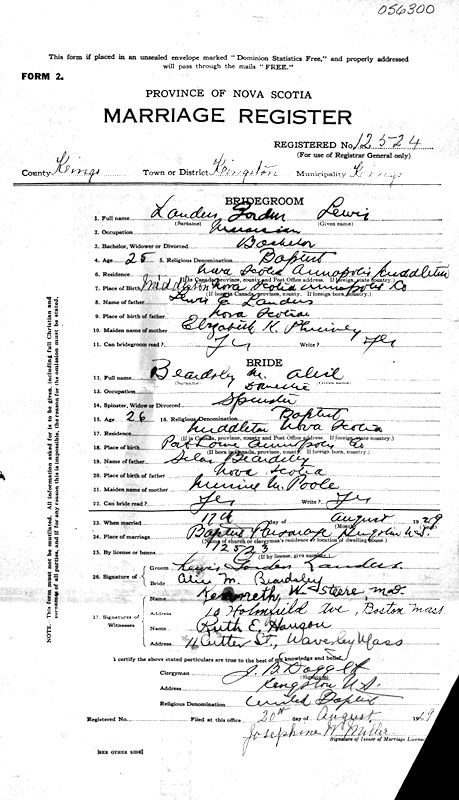 056300
This form if placed in an unsealed envelope marked "Dominion Statistics Free," and properly addressed
will pass through the mails "FREE."
FORM 2.
PROVINCE OF NOVA SCOTIA
MARRIAGE REGISTER
REGISTERED No. 12524
(For use of Registrar General only)
County Kings Town or District Kingston Municipality Kings
BRIDEGROOM
1. Full name Landers Gordon Lewis
(Surname) (Given name)
2. Occupation
3. Bachelor, Widower or Divorced Bachelor
4. Age 25 5. Religious Denomination Baptist
6. Residence Nova Scotia Annapolis Middleton
(If in Canada, province, county and Post Office address. If foreign state, country.)
7. Place of Birth Middleton Nova Scotia Annapolis Co
(If born in Canada, province, county. If foreign born, country.)
8. Name of father Lewis E Landers
9. Place of birth of father Nova Scotia
10. Maiden name of mother Elizabeth K. Phinney
11. Can bridegroom read? Yes Write? Yes
BRIDE
12. Full name Beardsley M. Alice
(Surname) (Given name)
13. Occupation Domestic
14. Spinster, Widow or Divorced Spinster
15. Age 26 16. Religious Denomination Baptist
17. Residence Middleton Nova Scotia
(If in Canada, province, county and Post Office address. If foreign state, country.)
18. Place of birth Port Lorne Annapolis Co
(If born in Canada, province, county. If foreign born, country.)
19. Name of father Silas Beardsley
20. Place of birth of father Nova Scotia
21. Maiden name of mother M. Poole
22. Can bride read? Yes Write? Yes
23. When married 17th day of August 1929
(Month)
24. Place of marriage Baptist Parsonage Kingston N.S.
(Name of church or clergyman's residence or location of dwelling house.)
25. By license or banns 12523
(If by license, give number)
26. Signature of Groom Lewis Gordon Landers
Bride Alice M. Beardsley
27. Signatures of Witnesses
Name Kenneth W. Steere, M.D.
Address 10 Ave, Boston Mass.
Name Ruth E. Hanson
Address 11 Cutter St., Waverley Mass
I certify the above stated particulars are true to the best of my knowledge and belief.
Clergyman J. B. Daggett
(Signature)
Address Kingston N.S.
Religious Denomination United Baptist
Registered No. Filed at this office 20th day of August 1929
Josephine W. Miller
Signature of Issuer of Marriage License
[SEE OTHER SIDE]
NOTE. This form must not be mutilated. All information asked for is to be given, including full Christian and
surnames of all parties, and if for any reason this is impossible, the reason for the omission must be stated.